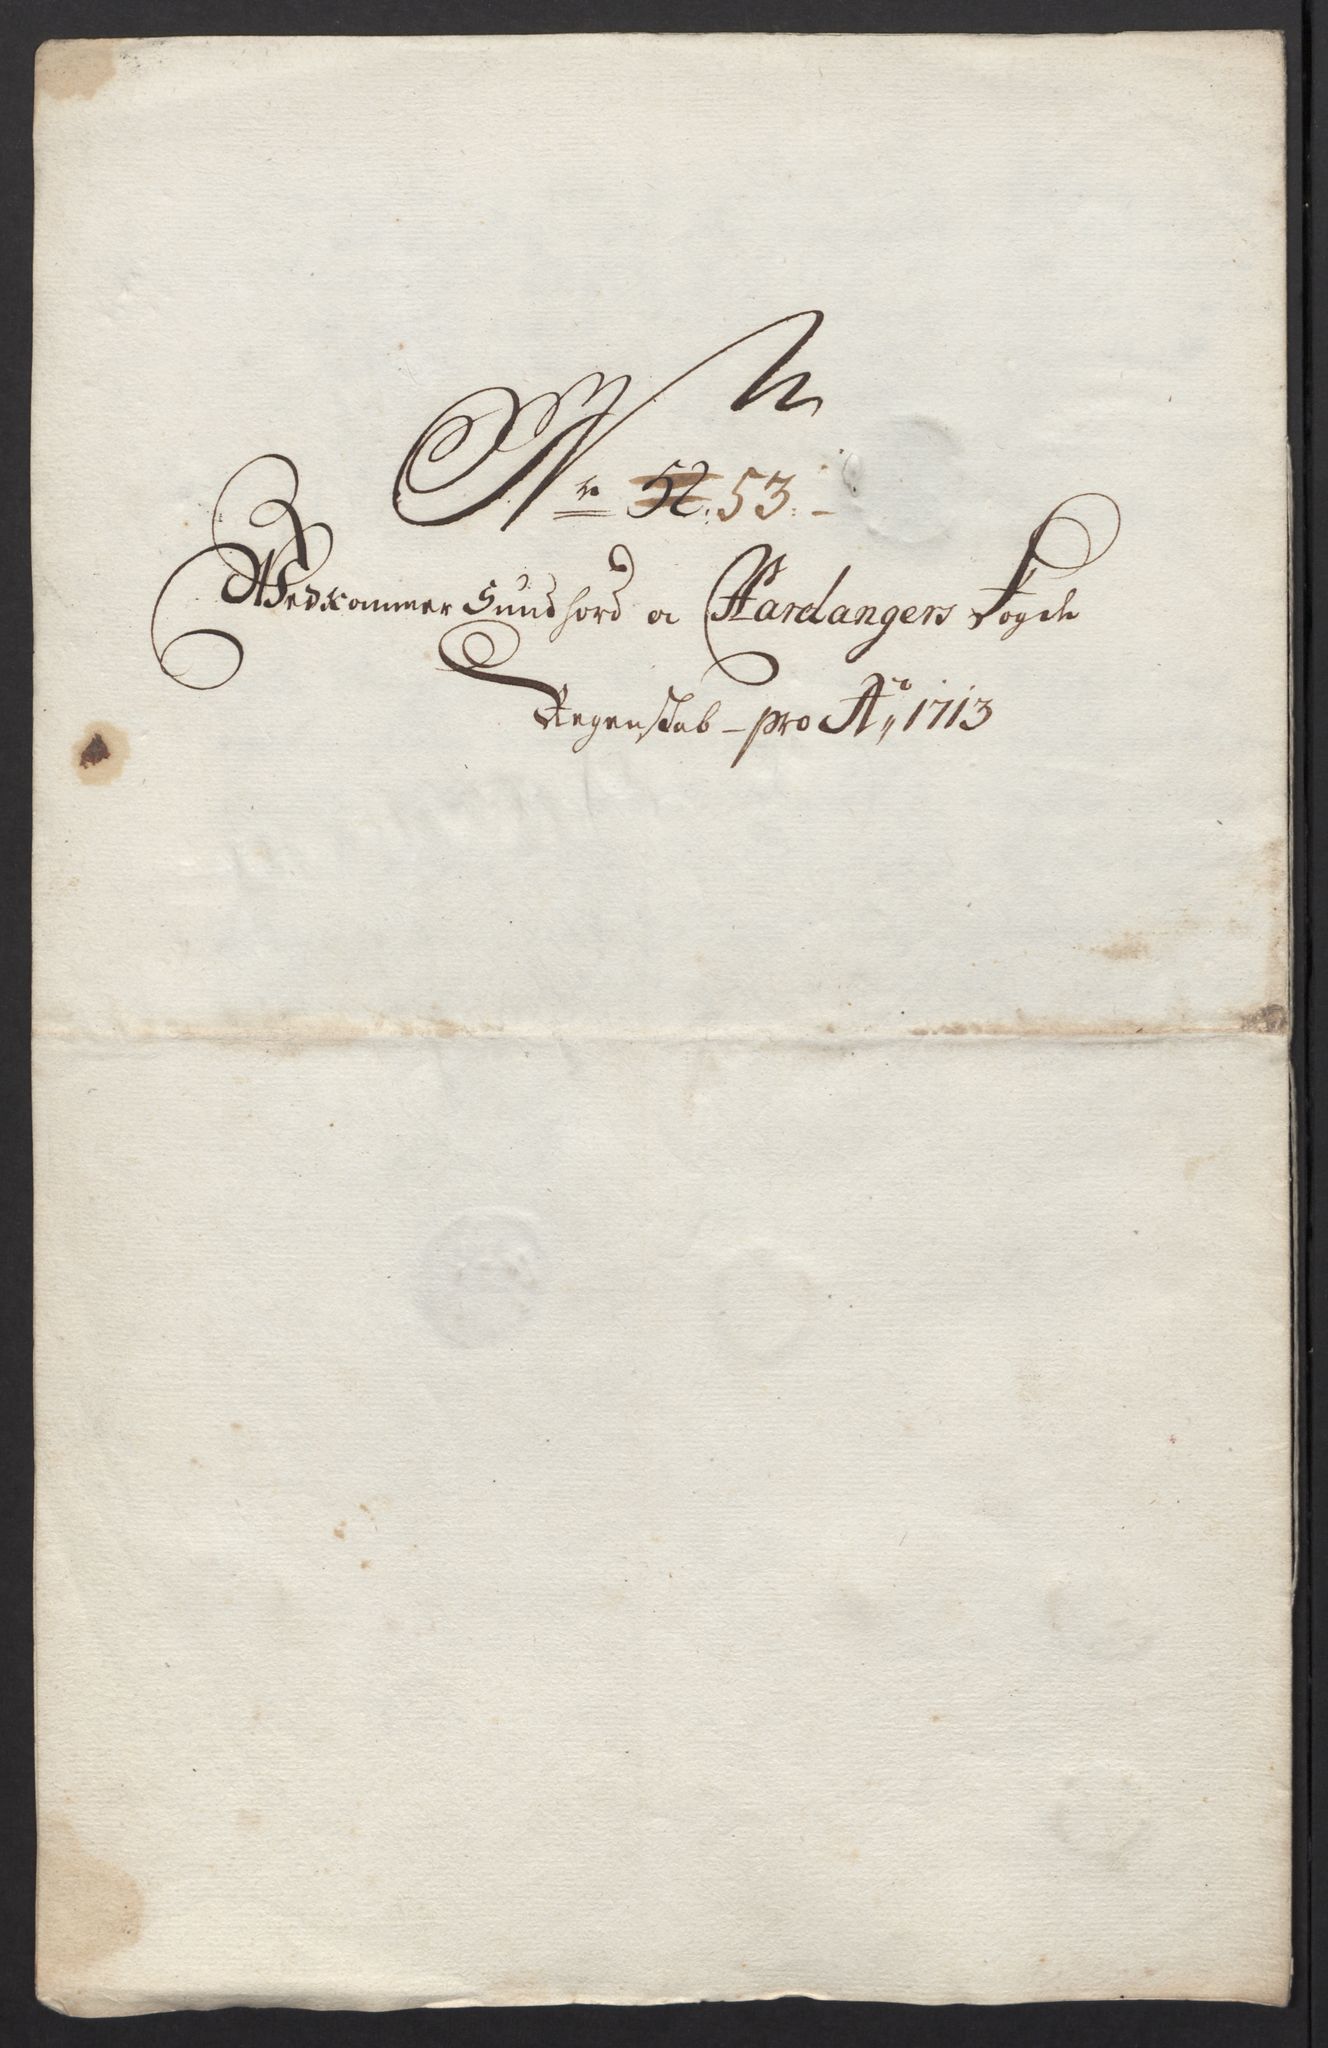 No 52. 53. -
Vedkommer Sundhord oc Hardangers Fogde
Regenskab - pro Ao, 1713